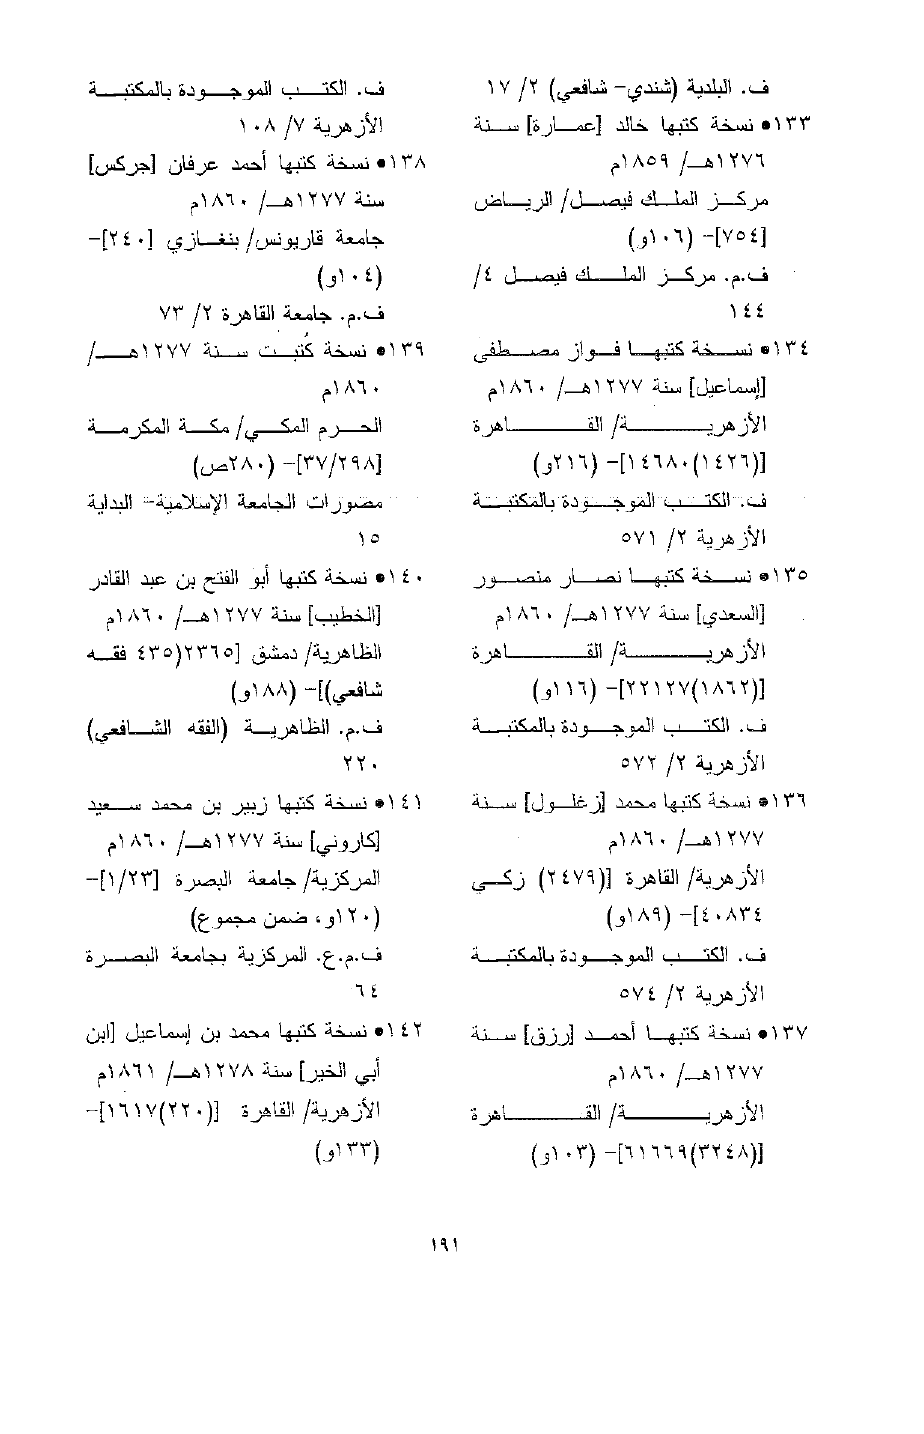 ف. البلدية (شندي- شافعي) ٢/ ١٧
١٣٣• نسخة كتبها خالد [عمارة] سنة
١٢٧٦هـ/ ١٨٥٩م
مركز الملك فيصل/ الرياض
[٧٥٤]- (١٠٦و)
ف.م. مركز الملك فيصل ٤/
١٤٤
١٣٤• نسخة كتبها فواز مصطفى
[إسماعيل] سنة ١٢٧٧هـ/ ١٨٦٠م
الأزهرية/ القاهرة
[(١٤٢٦)١٤٦٨٠]- (٢١٦و)
ف. الكتب الموجودة بالمكتبة
الأزهرية ٢/ ٥٧١
١٣٥• نسخة كتبها نصار منصور
[السعدي] سنة ١٢٧٧هـ/ ١٨٦٠م
الأزهرية/ القاهرة
[(١٨٦٢)٢٢١٢٧]- (١١٦و)
ف. الكتب الموجودة بالمكتبة
الأزهرية ٢/ ٥٧٢
١٣٦• نسخة كتبها محمد [زغلول] سنة
١٢٧٧هـ/ ١٨٦٠م
الأزهرية/ القاهرة [(٢٤٧٩) زكي
٤٠٨٣٤]- (١٨٩و)
ف. الكتب الموجودة بالمكتبة
الأزهرية ٢/ ٥٧٤
١٣٧• نسخة كتبها أحمد [رزق] سنة
١٢٧٧هـ/ ١٨٦٠م
الأزهرية/ القاهرة
[(٣٢٤٨)٦١٦٦٩]- (١٠٣و)
ف. الكتب الموجودة بالمكتبة
الأزهرية ٧/ ١٠٨
١٣٨• نسخة كتبها أحمد عرفان [جركس]
سنة ١٢٧٧هـ/ ١٨٦٠م
جامعة قاريونس/ بنغازي [٢٤٠]-
(١٠٤و)
ف.م. جامعة القاهرة ٢/ ٧٣
١٣٩• نسخة كُتبت سنة ١٢٧٧هـ/
١٨٦٠م
الحرم المكي/ مكة المكرمة
[٣٧/٢٩٨]- (٢٨٠ص)
مصورات الجامعة الإسلامية- البداية
١٥
١٤٠• نسخة كتبها أبو الفتح بن عبد القادر
[الخطيب] سنة ١٢٧٧هـ/ ١٨٦٠م
الظاهرية/ دمشق [٢٣٦٥(٤٣٥ فقه
شافعي)]- (١٨٨و)
ف.م. الظاهرية (الفقه الشافعي)
٢٢٠
١٤١• نسخة كتبها زبير بن محمد سعيد
[كاروني] سنة ١٢٧٧هـ/ ١٨٦٠م
المركزية/ جامعة البصرة [١/٢٣]-
(١٢٠و، ضمن مجموع)
ف.م.ع. المركزية بجامعة البصرة
٦٤
١٤٢• نسخة كتبها محمد بن إسماعيل [ابن
أبي الخير] سنة ١٢٧٨هـ/ ١٨٦١م
الأزهرية/ القاهرة [(٢٢٠)١٦١٧]-
(١٣٣و)
١٩١